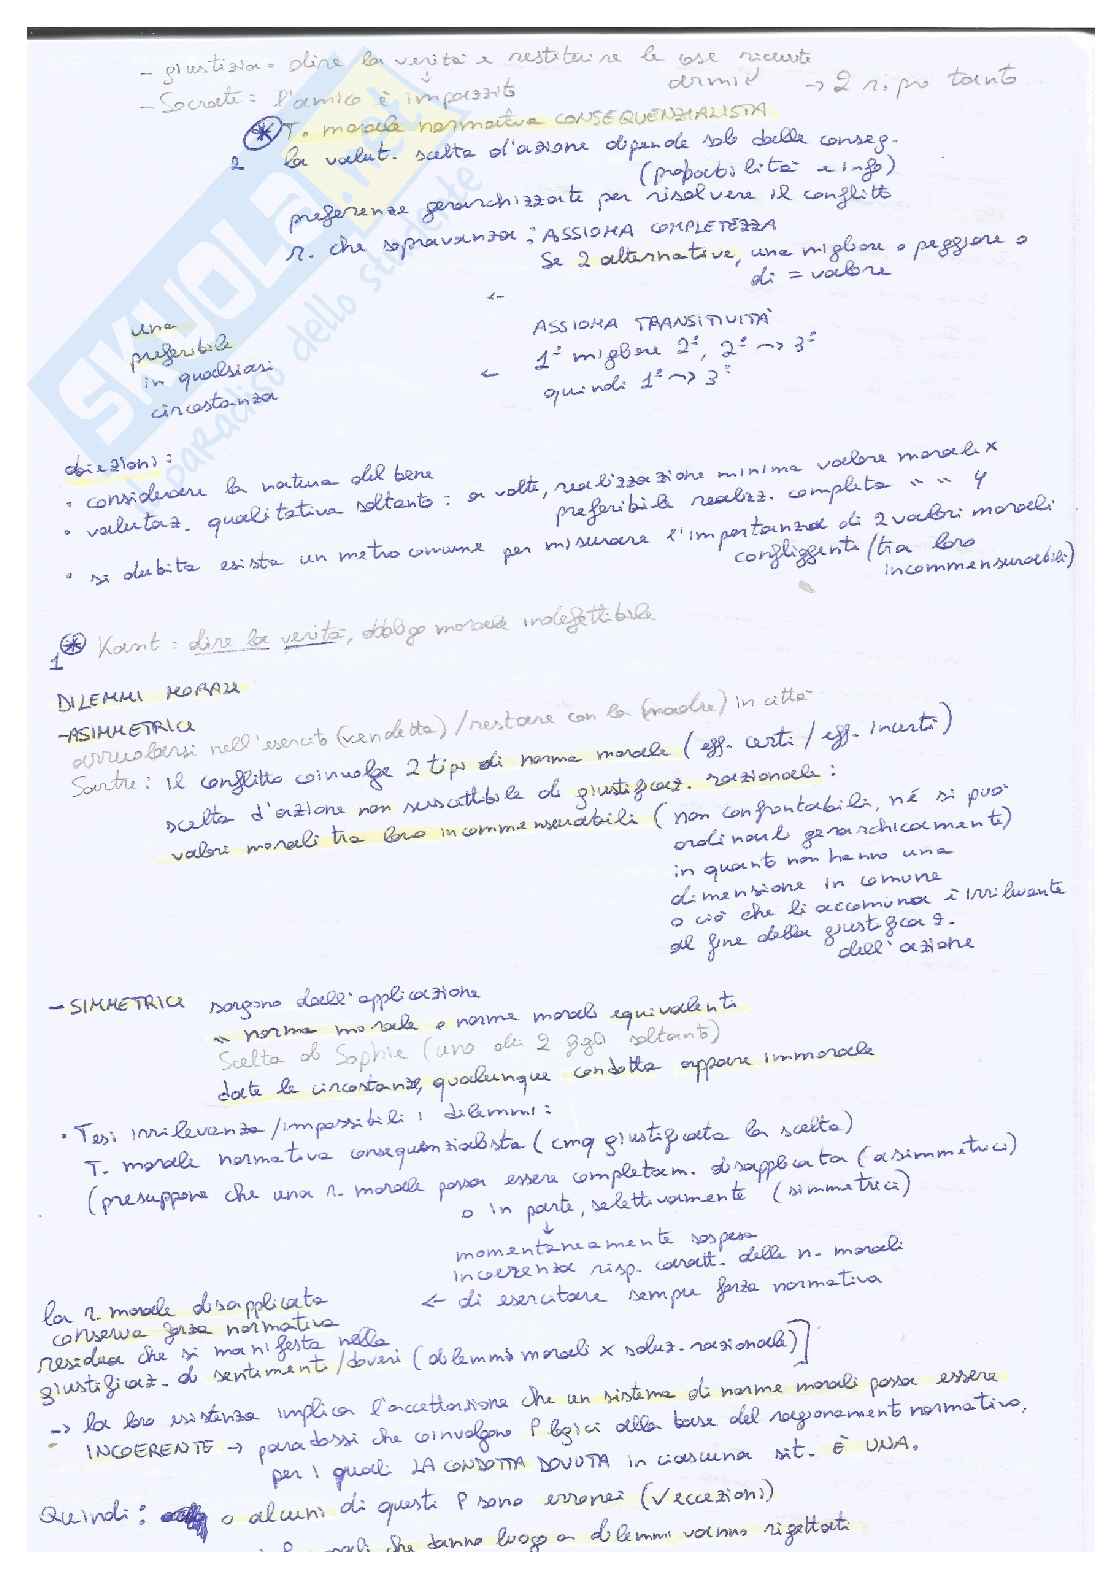 - giustizia = dire la verità e restituire le cose ricevute
- Socrate = l'amico è impazzito
armi → 2 r. po tanto
* T. morale normativa CONSEQUENZIALISTA
2 la valut. scelta d'azione dipende solo dalle conseg.
(probabilità e info)
preferenze gerarchizzate per risolvere il conflitto
r. che sopravanza : ASSIOMA COMPLETEZZA
Se 2 alternative, una migliore o peggiore o
di = valore
←
una
preferibile
in qualsiasi
circostanza
ASSIOMA TRANSITIVITÀ
1ª migliore 2ª, 2ª → 3ª
← quindi 1ª → 3ª
obiezioni :
• considerare la natura del bene
• valutaz. qualitativa soltanto : a volte, realizzazione minima valore morale x
preferibile realizz. completa " " y
• si dubita esista un metro comune per misurare l'importanza di 2 valori morali
confliggenti (tra loro
incommensurabili)
1 * Kant = dire la verità, obbligo morale indefettibile
DILEMMI MORALI
- ASIMMETRICI
arruolarsi nell'esercito (vendetta) / restare con la (madre) in città
Sartre : il conflitto coinvolge 2 tipi di norma morale (eff. certi / eff. incerti)
scelta d'azione non suscettibile di giustificaz. razionale :
valori morali tra loro incommensurabili (non confrontabili, né si può
ordinarli gerarchicamente)
in quanto non hanno una
dimensione in comune
o ciò che li accomuna è irrilevante
al fine della giustificaz.
dell'azione
- SIMMETRICI sorgono dall'applicazione
" norma morale o norme morali equivalenti
Scelta di Sophie (uno dei 2 figli soltanto)
date le circostanze, qualunque condotta appare immorale
• Tesi irrilevanza / impossibili i dilemmi :
T. morale normativa consequenzialista (cmq giustificata la scelta)
(presuppone che una r. morale possa essere completam. disapplicata (asimmetrici)
o in parte, selettivamente (simmetrici)
↓
momentaneamente sospesa
incoerenza risp. caratt. delle n. morali
← di esercitare sempre forza normativa
la r. morale disapplicata
conserva forza normativa
residua che si manifesta nella
giustificaz. di sentimenti / doveri (dilemmi morali x soluz. razionale)]
→ la loro esistenza implica l'accettazione che un sistema di norme morali possa essere
INCOERENTE → paradossi che coinvolgono P logici alla base del ragionamento normativo,
per i quali LA CONDOTTA DOVUTA in ciascuna sit. È UNA.
Quindi : o alcuni di questi P sono erronei (V eccezioni)
che danno luogo a dilemmi vanno rigettati
SKUOLA.net
il paradiso dello studente